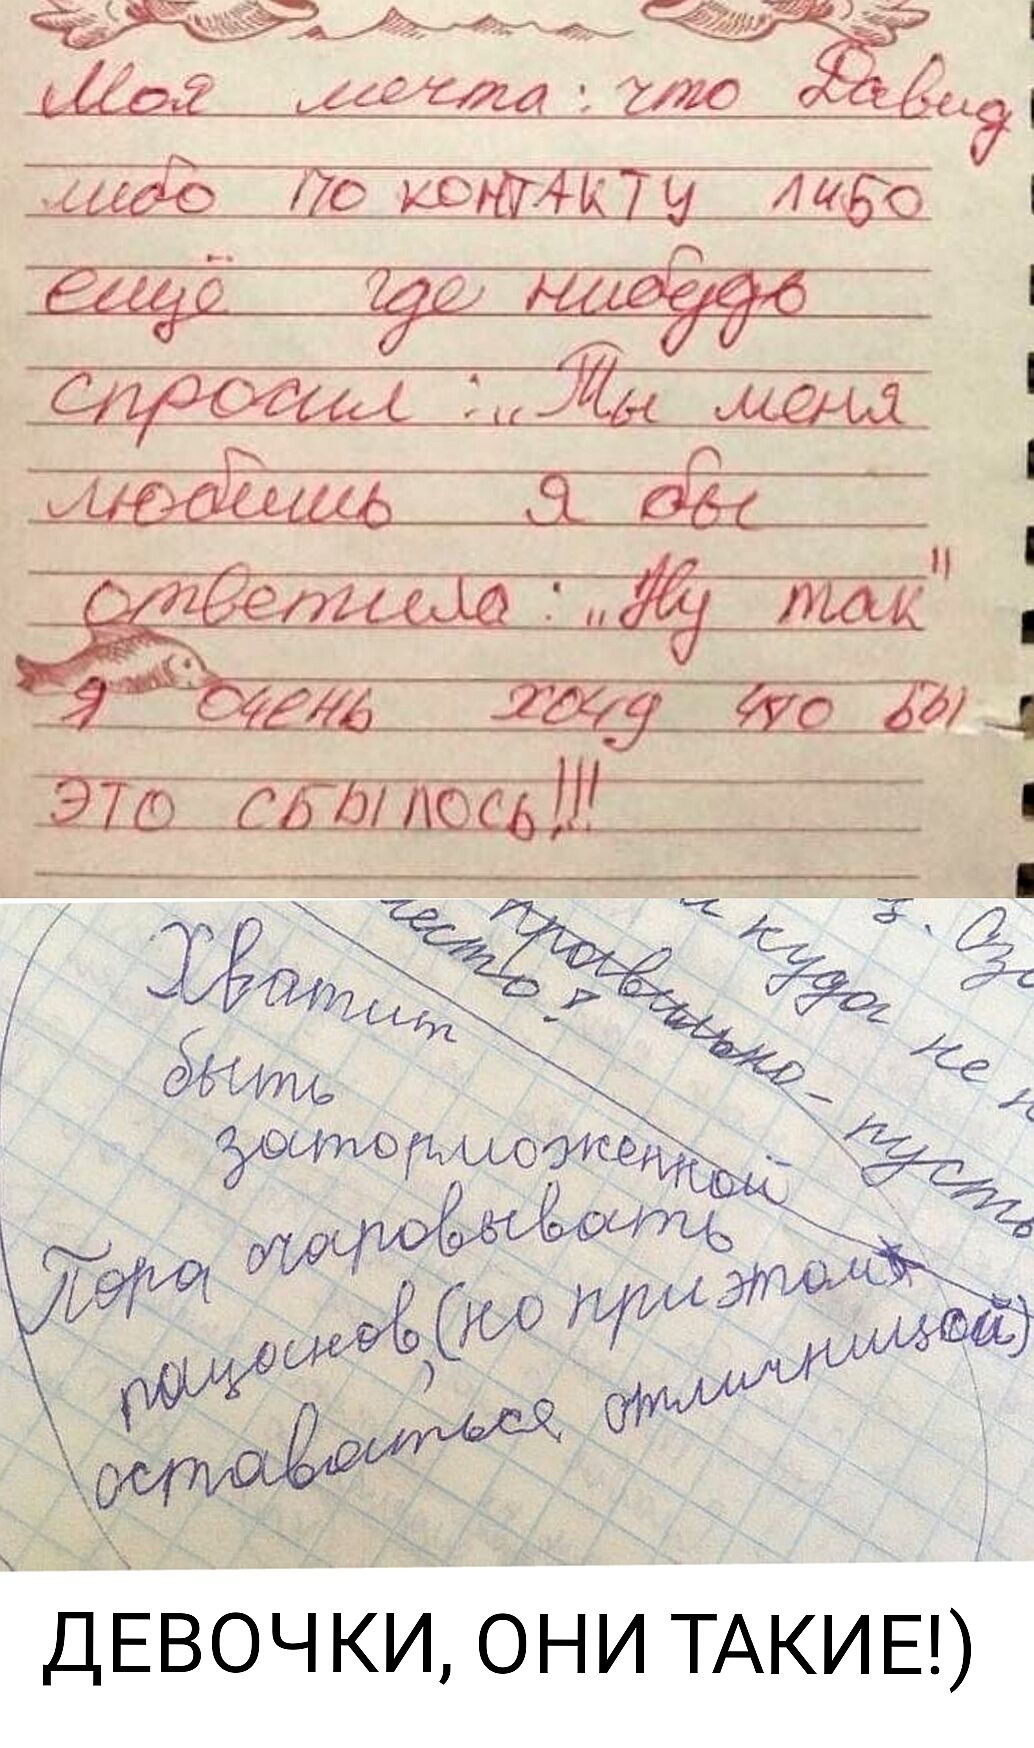 Моя мечта: что Давид
либо по контакту либо
ещё где нибудь
спросил: „Ты меня
любишь я бы
ответила: „Ну так"
я очень хочу что бы
это сбылось!!!
место?
правильно - пусть
куда не
Хватит
быть
заторможенной
Пора очаровывать
пацанов, (но при этом
оставаться отличницей)
ДЕВОЧКИ, ОНИ ТАКИЕ!)